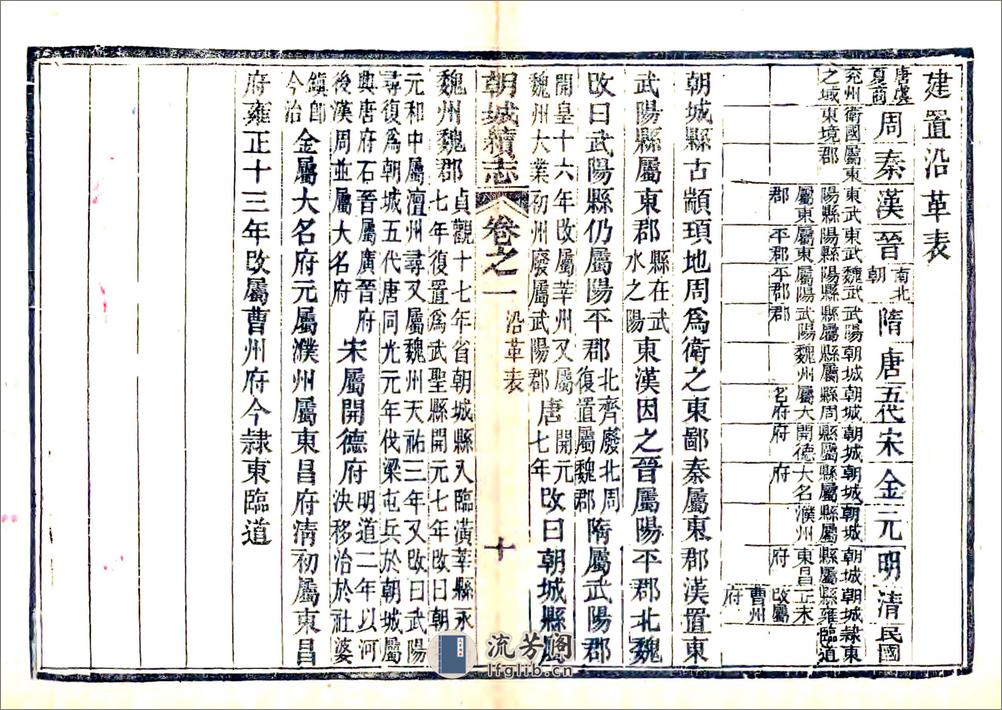 建置沿革表
唐虞夏商 周 秦 漢 晉 南北朝 隋 唐 五代 宋 金 元 明 清 民國
兗州之域
衛國東境
屬東郡
東武陽縣屬東郡
東武陽縣屬陽平郡
魏武陽縣屬陽平郡
武陽縣屬武陽郡
朝城縣屬魏州
朝城縣周屬大名府
朝城縣屬開德府
朝城縣屬大名府
朝城縣屬濮州
朝城縣屬東昌府
朝城縣雍正末改屬曹州府
朝城隸東臨道
朝城縣古顓頊地周爲衛之東鄙秦屬東郡漢置東
武陽縣屬東郡縣在武水之陽東漢因之晉屬陽平郡北魏
改曰武陽縣仍屬陽平郡北齊廢北周復置屬魏郡隋屬武陽郡
開皇十六年改屬莘州又屬魏州大業初州廢屬武陽郡唐開元七年改曰朝城縣屬
朝城續志 卷之一 沿革表 十
魏州魏郡貞觀十七年省朝城縣入臨黃莘縣永七年復置爲武聖縣開元七年改曰朝
元和中屬澶州尋又屬魏州天祐三年又改曰武陽尋復爲朝城五代唐同光元年伐梁屯兵於朝城屬
興唐府石晉屬廣晉府後漢周並屬大名府宋屬開德府明道二年以河決移治於社婆
鎮即今治金屬大名府元屬濮州屬東昌府清初屬東昌
府雍正十三年改屬曹州府今隸東臨道
流芳阁
lfglib.cn